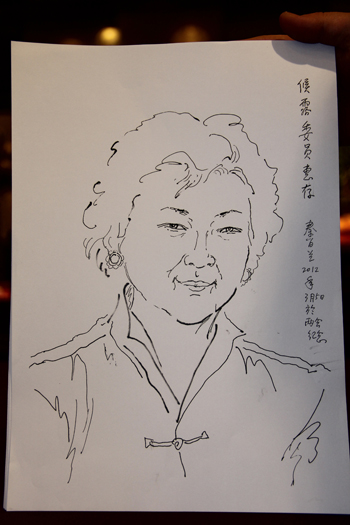 侯露委员惠存
秦百兰
2012年
3月5日
于两会
纪念